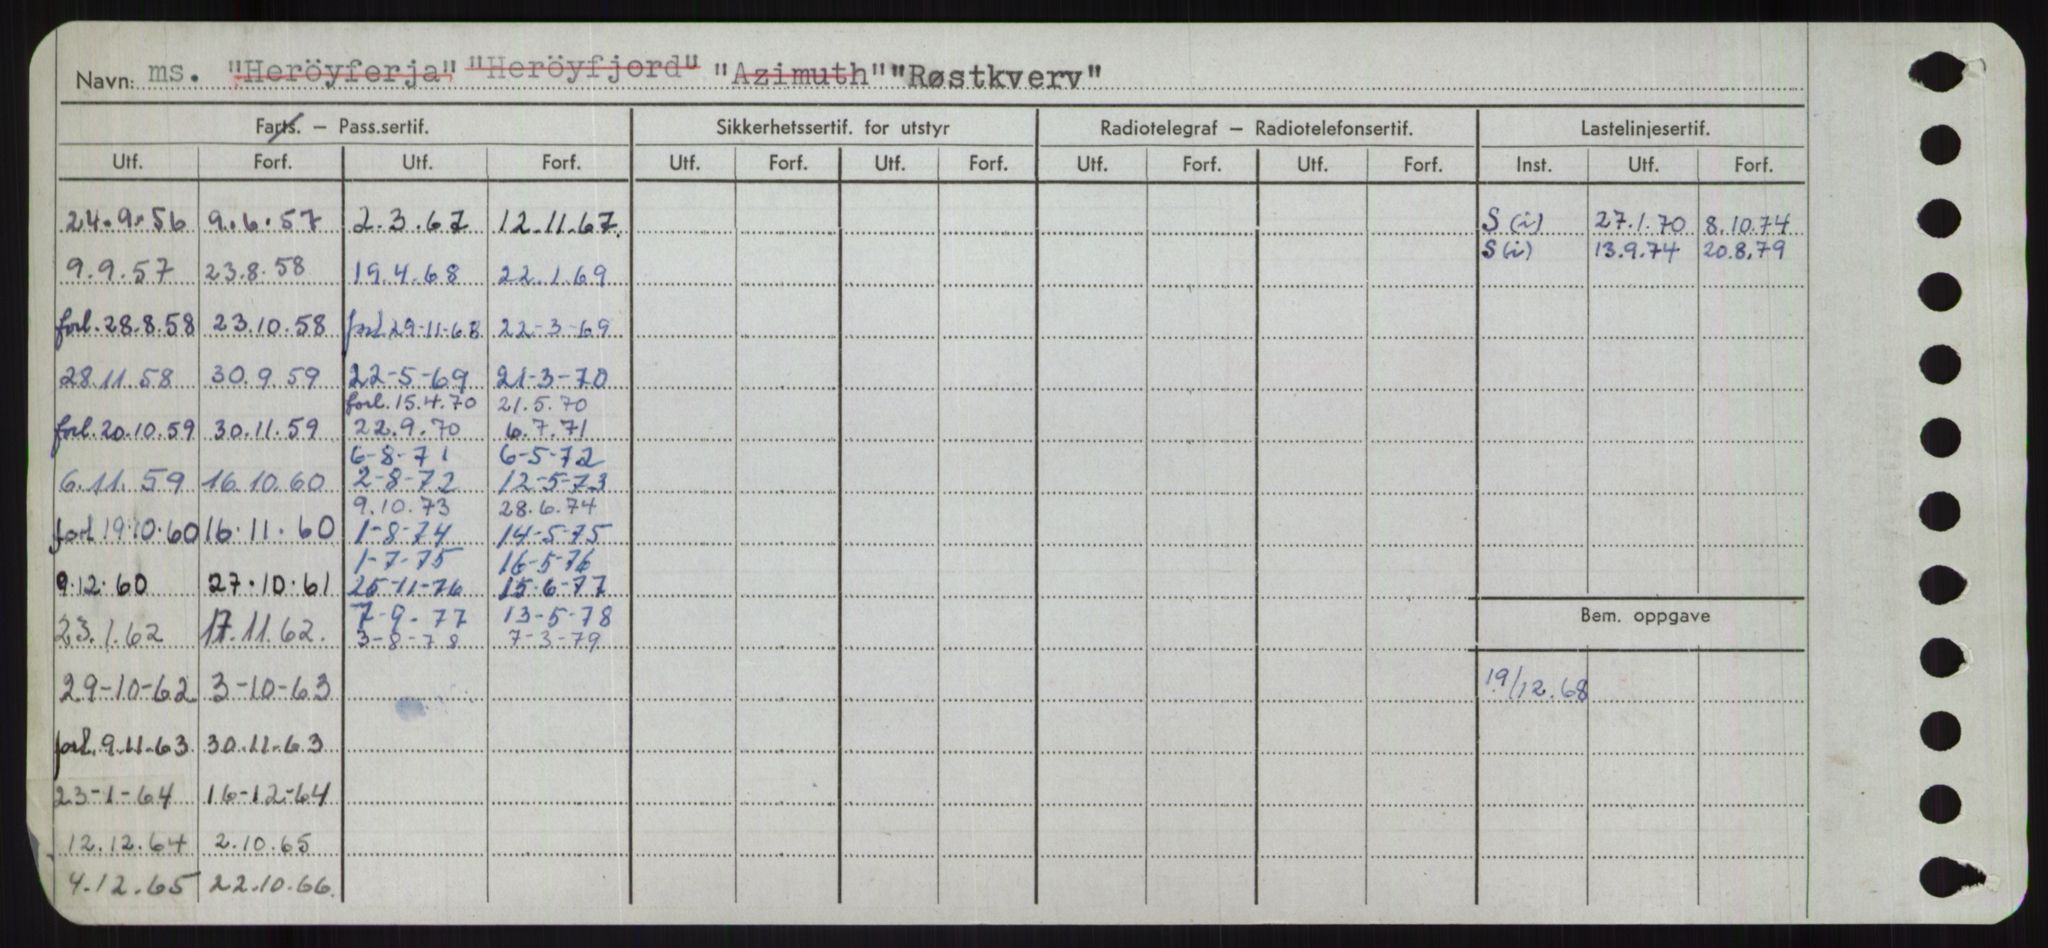 Navn: ms. "Heröyferja" "Heröyfjord" "Azimuth" "Røstkverv"
Farts. – Pass.sertif. Sikkerhetssertif. for utstyr Radiotelegraf – Radiotelefonsertif. Lastelinjesertif.
Utf. Forf. Utf. Forf. Utf. Forf. Utf. Forf. Utf. Forf. Utf. Forf. Inst. Utf. Forf.
24.9.56 9.6.57 2.3.67 12.11.67. S(i) 27.1.70 8.10.74
S(i) 13.9.74 20.8.79
9.9.57 23.8.58 19.4.68 22.1.69
forl.28.8.58 23.10.58 forl.29-11-68 22-3-69
28.11.58 30.9.59 22-5-69 21-3-70
forl.15.4.70 21.5.70
forl.20.10.59 30.11.59 22.9.70 6.7.71
6-8-71 6-5-72
6.11.59 16.10.60 2-8-72 12-5-73
9.10.73 28.6.74
forl 19.10.60 16.11.60 1-8-74 14-5-75
1-7-75 16-5-76
9.12.60 27.10.61 25-11-76 15-6-77
7-9-77 13-5-78
Bem. oppgave
23.1.62 17.11.62. 3-8-78 7-3-79
29-10-62 3-10-63 19/12.68
forl.9.11.63 30.11.63
23-1-64 16-12-64
12.12.64 2.10.65
4.12.65 22.10.66.